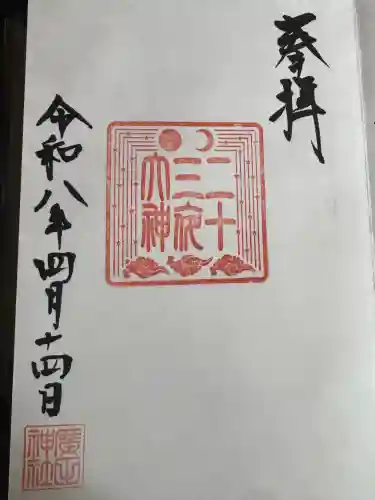 奉拝
二十
三夜
大神
令和八年四月十四日
廣丘
神社